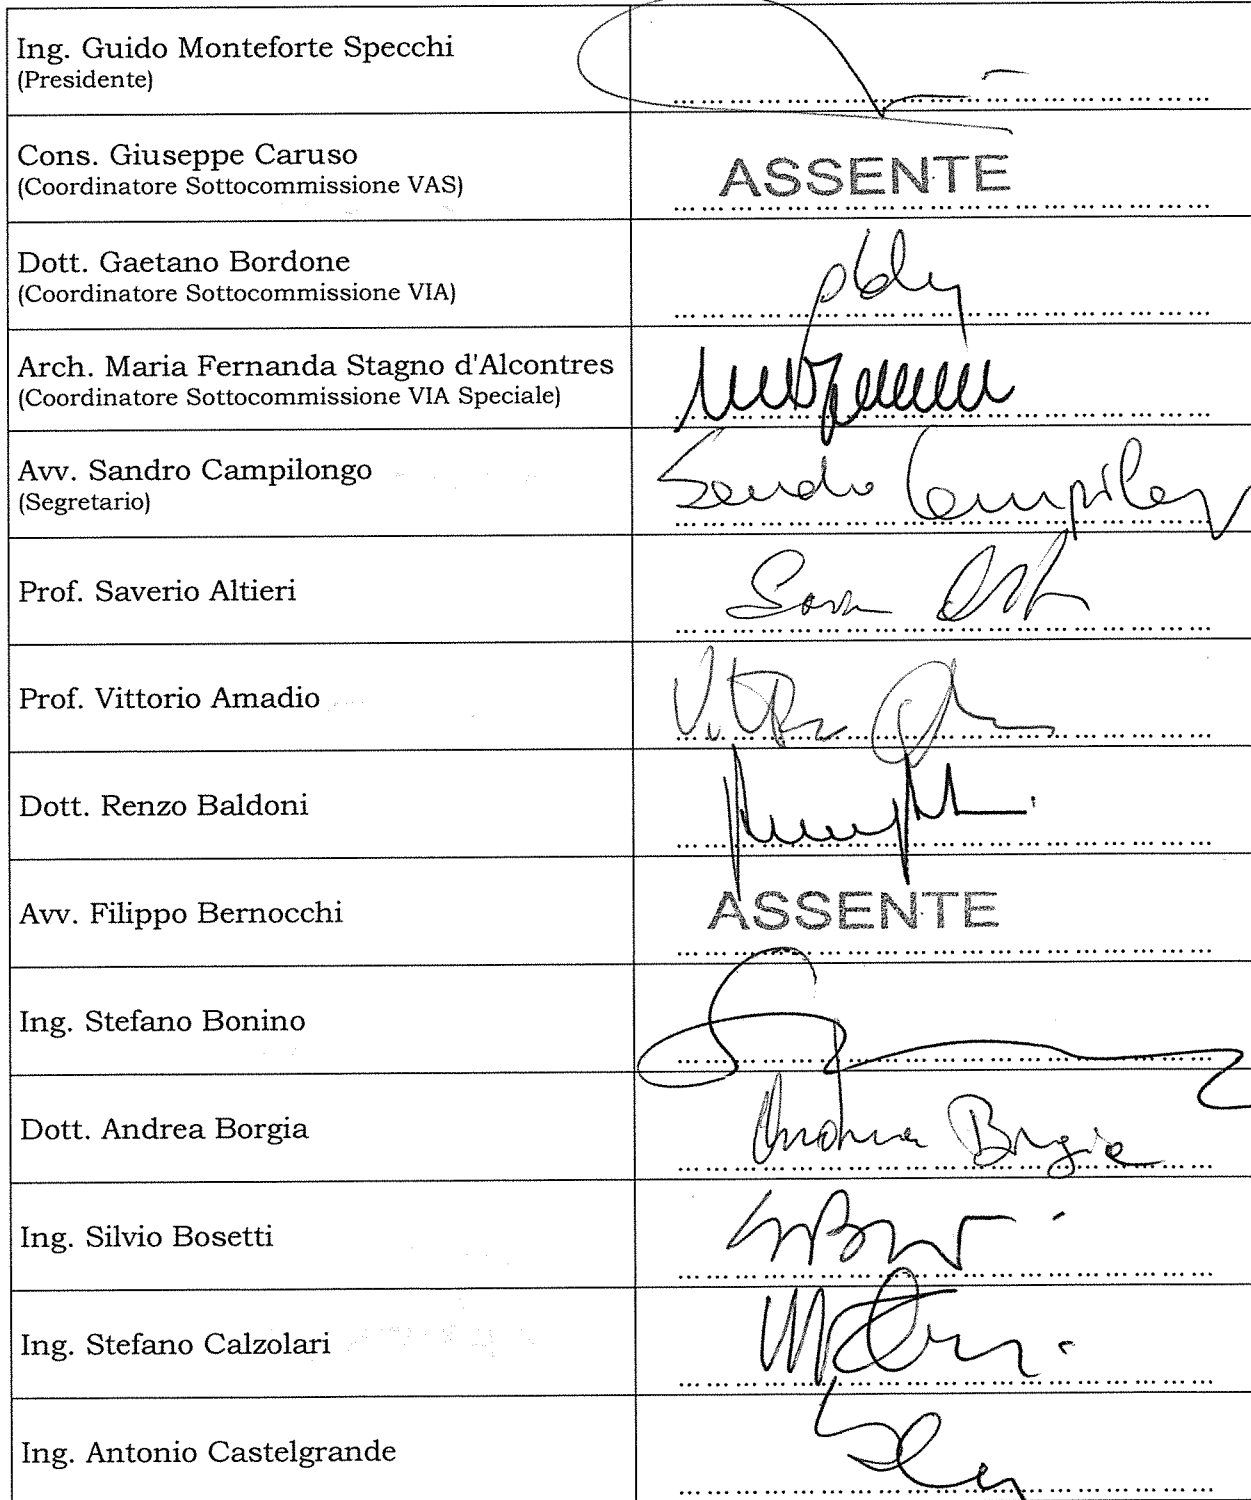 Ing. Guido Monteforte Specchi
(Presidente)
Cons. Giuseppe Caruso
(Coordinatore Sottocommissione VAS)
ASSENTE
Dott. Gaetano Bordone
(Coordinatore Sottocommissione VIA)
Arch. Maria Fernanda Stagno d'Alcontres
(Coordinatore Sottocommissione VIA Speciale)
Avv. Sandro Campilongo
(Segretario)
Prof. Saverio Altieri
Prof. Vittorio Amadio
Dott. Renzo Baldoni
Avv. Filippo Bernocchi
ASSENTE
Ing. Stefano Bonino
Dott. Andrea Borgia
Andrea Borgia
Ing. Silvio Bosetti
Ing. Stefano Calzolari
Ing. Antonio Castelgrande